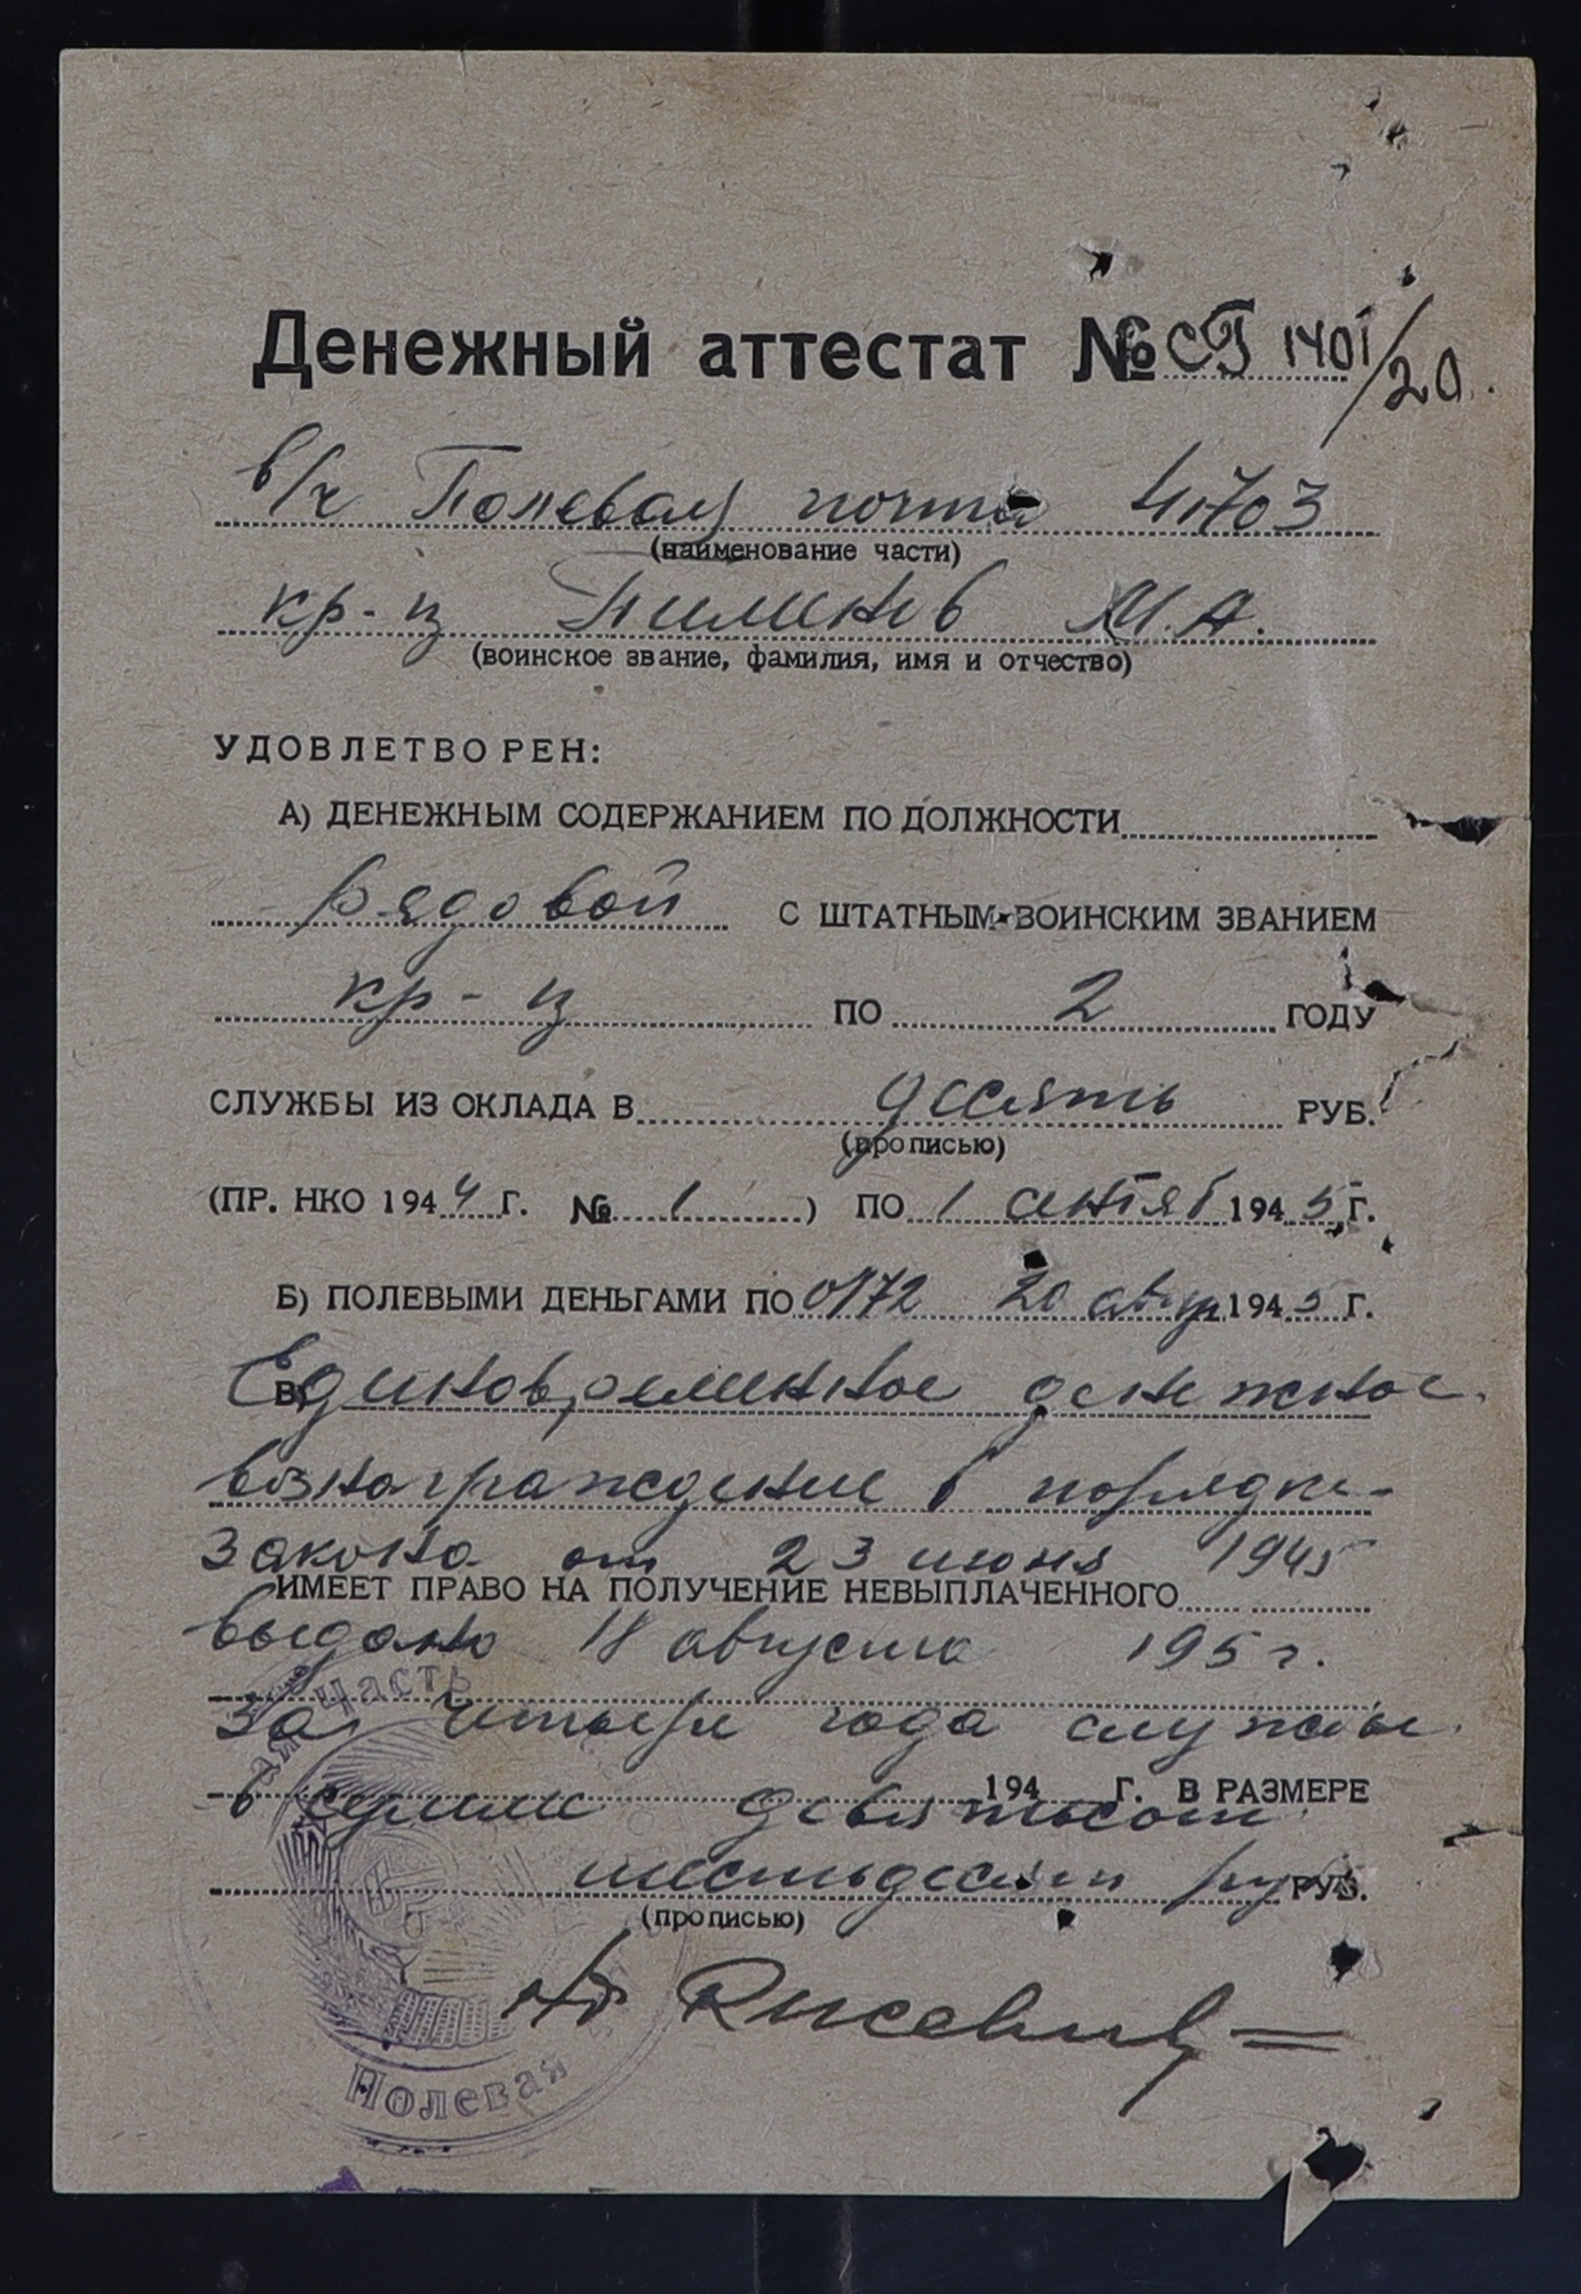 Денежный аттестат № СГ 1401/20.
в/ч Полевая почта 41703
(наименование части)
кр-ц Пименов М.А.
(воинское звание, фамилия, имя и отчество)
УДОВЛЕТВОРЕН:
А) ДЕНЕЖНЫМ СОДЕРЖАНИЕМ ПО ДОЛЖНОСТИ
рядовой С ШТАТНЫМ ВОИНСКИМ ЗВАНИЕМ
кр-ц ПО 2 ГОДУ
СЛУЖБЫ ИЗ ОКЛАДА В десять РУБ.
(прописью)
(ПР. НКО 1944 Г. № 1) ПО 1 сентяб 1945 Г.
Б) ПОЛЕВЫМИ ДЕНЬГАМИ ПО 0172 20 август 1945 Г.
В) Единовременное денежное
вознаграждение в порядке
закона от 23 июня 1945
ИМЕЕТ ПРАВО НА ПОЛУЧЕНИЕ НЕВЫПЛАЧЕННОГО
выдано 18 августа 195 г.
за четыре года службы
в сумме девятьсот 194 Г. В РАЗМЕРЕ
шестьдесят руб РУБ.
(прописью)
часть
Полевая